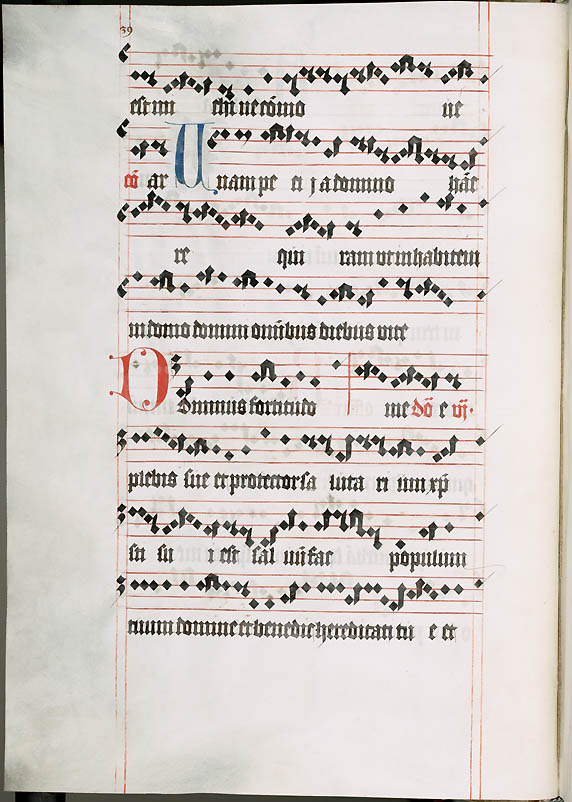 39
est in ne cōmo ue
cō ar Unam pe ti j a domino hāc
re qui ram ut inhabitem
in domo domini omībus diebus vite
Dominus fortitudo me dō e vj.
plebis sue et protector sa luta ri um xp̄
su su i est sal uū fac populum
tuum domine et benedic hereditati tu e et